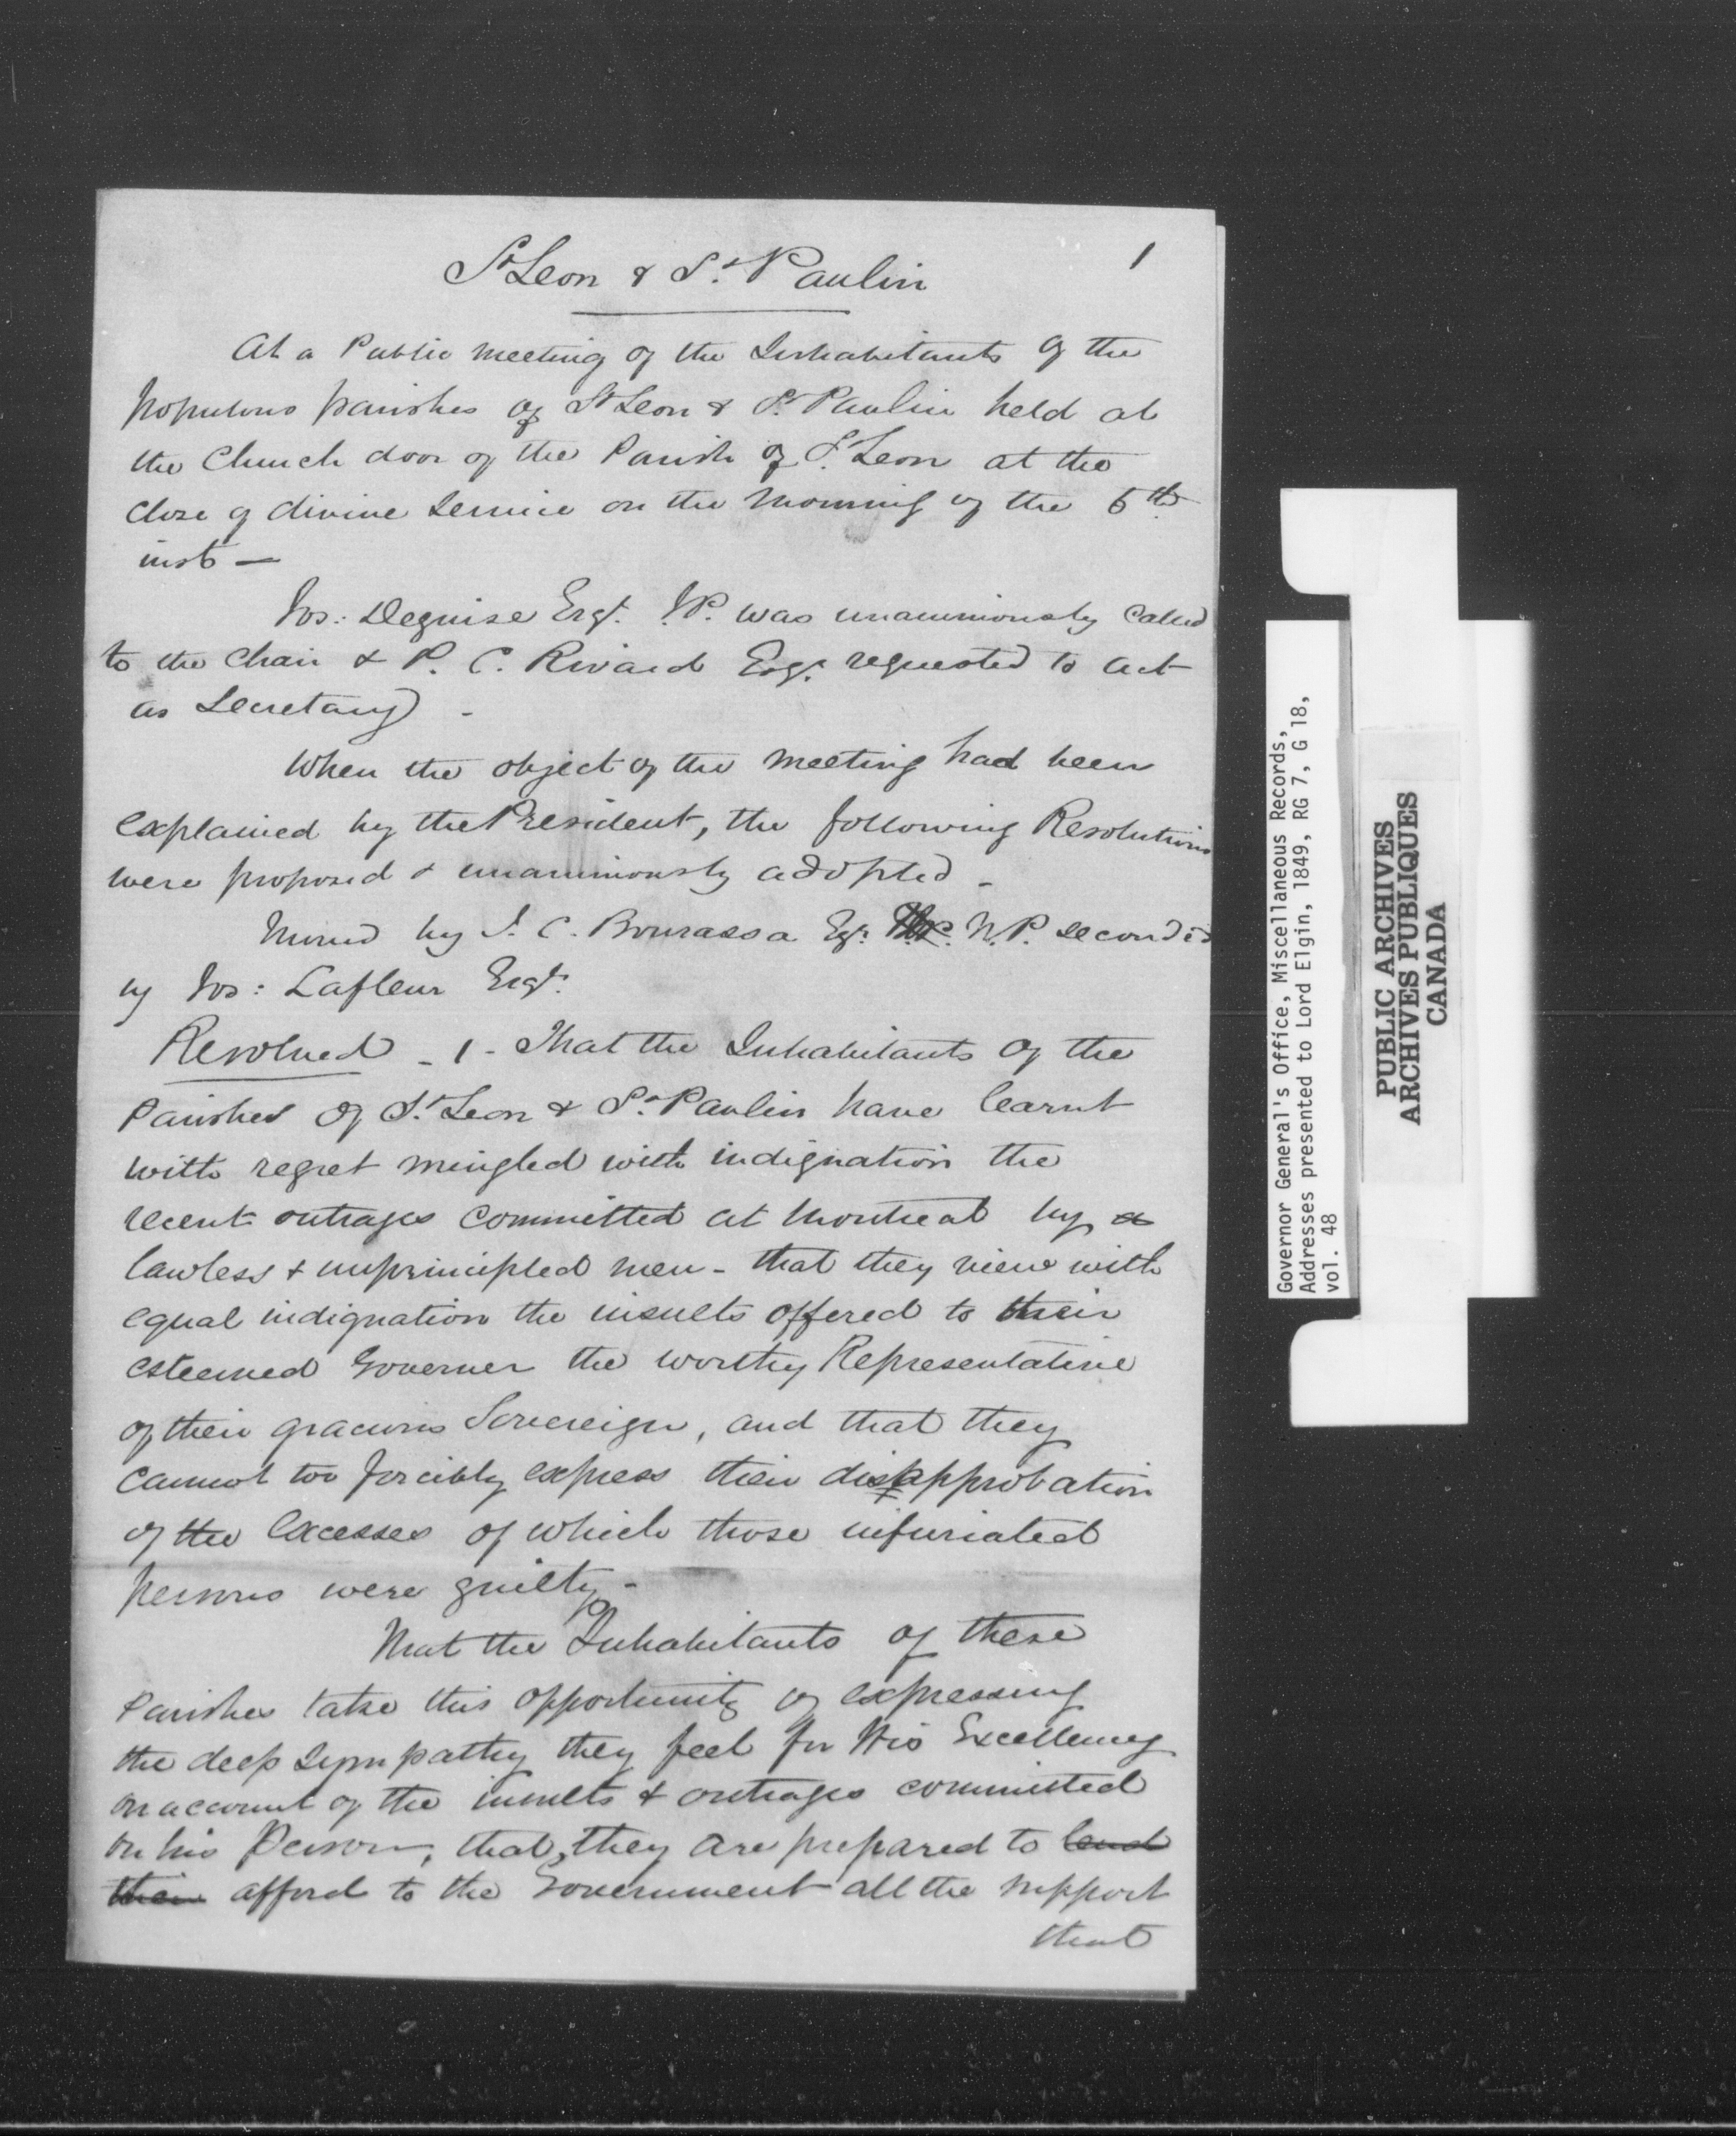 1
St Leon & St. Paulin
At a Public meeting of the Inhabitants of the
populous parishes of St Leon & St. Paulin held at
the Church door of the Parish of St. Leon at the
close of divine Service on the Morning of the 6th
inst —
Jos: Deguise Esqr. J.P. was unanimously called
to the Chair & P. C. Rivard Esqr. requested to act
as Secretary -
When the object of the meeting had been
explained by the President, the following Resolutions
were proposed & unanimously adopted -
Moved by J. C. Bourassa Esqr. N.P. seconded
by Jos: Lafleur Esqr.
Resolved - 1 - That the Inhabitants of the
Parishes of St. Leon & St. Paulin have learnt
with regret mingled with indignation the
recent outrages committed at Montreal by a
lawless & unprincipled men - that they view with
equal indignation the insults offered to their
esteemed Governer the worthy Representative
of their gracious Sovereign, and that they
cannot too forcibly express their disapprobation
of the excesses of which those infuriated
persons were guilty -
That the Inhabitants of these
Parishes take this opportunity of expressing
the deep sympathy they feel for His Excellency
on account of the insults & outrages committed
on his Person, that they are prepared to lend
their afford to the Government all the support
that
Governor General's Office, Miscellaneous Records,
Addresses presented to Lord Elgin, 1849, RG 7, G 18,
vol. 48
PUBLIC ARCHIVES
ARCHIVES PUBLIQUES
CANADA